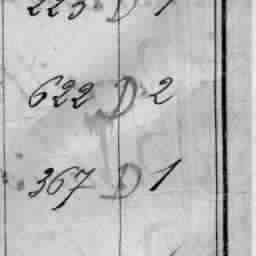 223 D 1
622 D 2
367 D 1